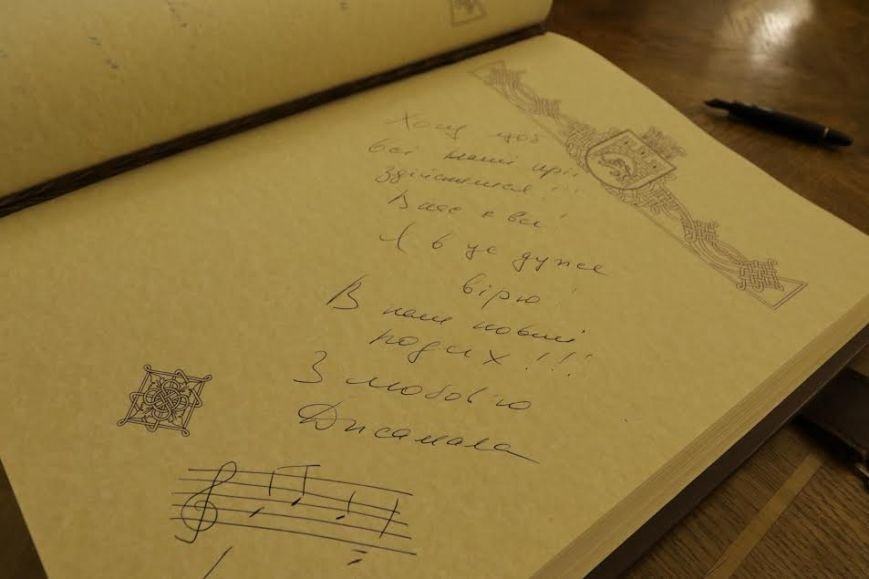 Хочу щоб
всі наші мрії
здійснилися!!!
В нас є все!
Я в це дуже
вірю!
В наш новий
подих!!!
З любов'ю
Джамала